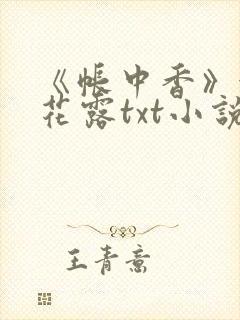 《帐中香》
花露txt小说
王青意